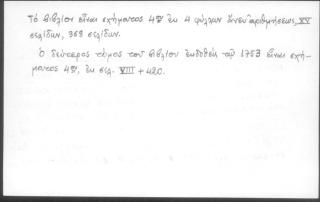 Τὸ βιβλίον εἶναι σχήματος 4ον ἐκ 4 φύλλων ἄνευ ἀριθμήσεως, XV
σελίδων, 368 σελίδων.
Ὁ δεύτερος τόμος τοῦ βιβλίου ἐκδοθεὶς τῷ 1753 εἶναι σχή-
ματος 4ον, ἐκ σελ. VIII + 420.